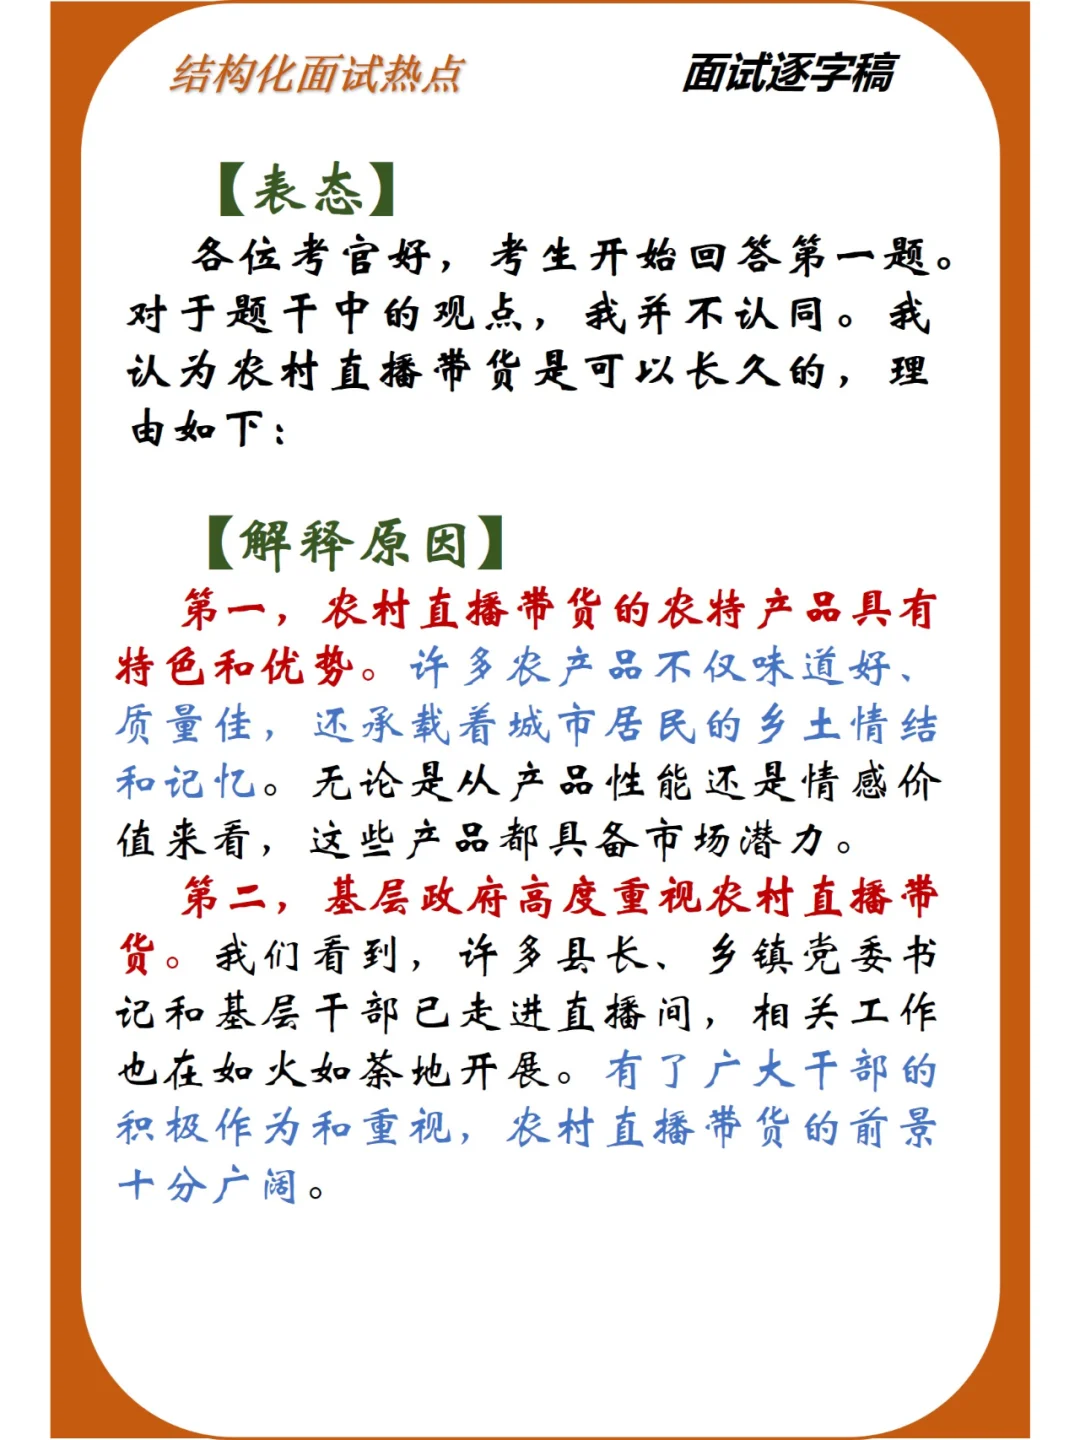 结构化面试热点
面试逐字稿
【表态】
各位考官好，考生开始回答第一题。
对于题干中的观点，我并不认同。我
认为农村直播带货是可以长久的，理
由如下：
【解释原因】
第一，农村直播带货的农特产品具有
特色和优势。许多农产品不仅味道好、
质量佳，还承载着城市居民的乡土情结
和记忆。无论是从产品性能还是情感价
值来看，这些产品都具备市场潜力。
第二，基层政府高度重视农村直播带
货。我们看到，许多县长、乡镇党委书
记和基层干部已走进直播间，相关工作
也在如火如荼地开展。有了广大干部的
积极作为和重视，农村直播带货的前景
十分广阔。